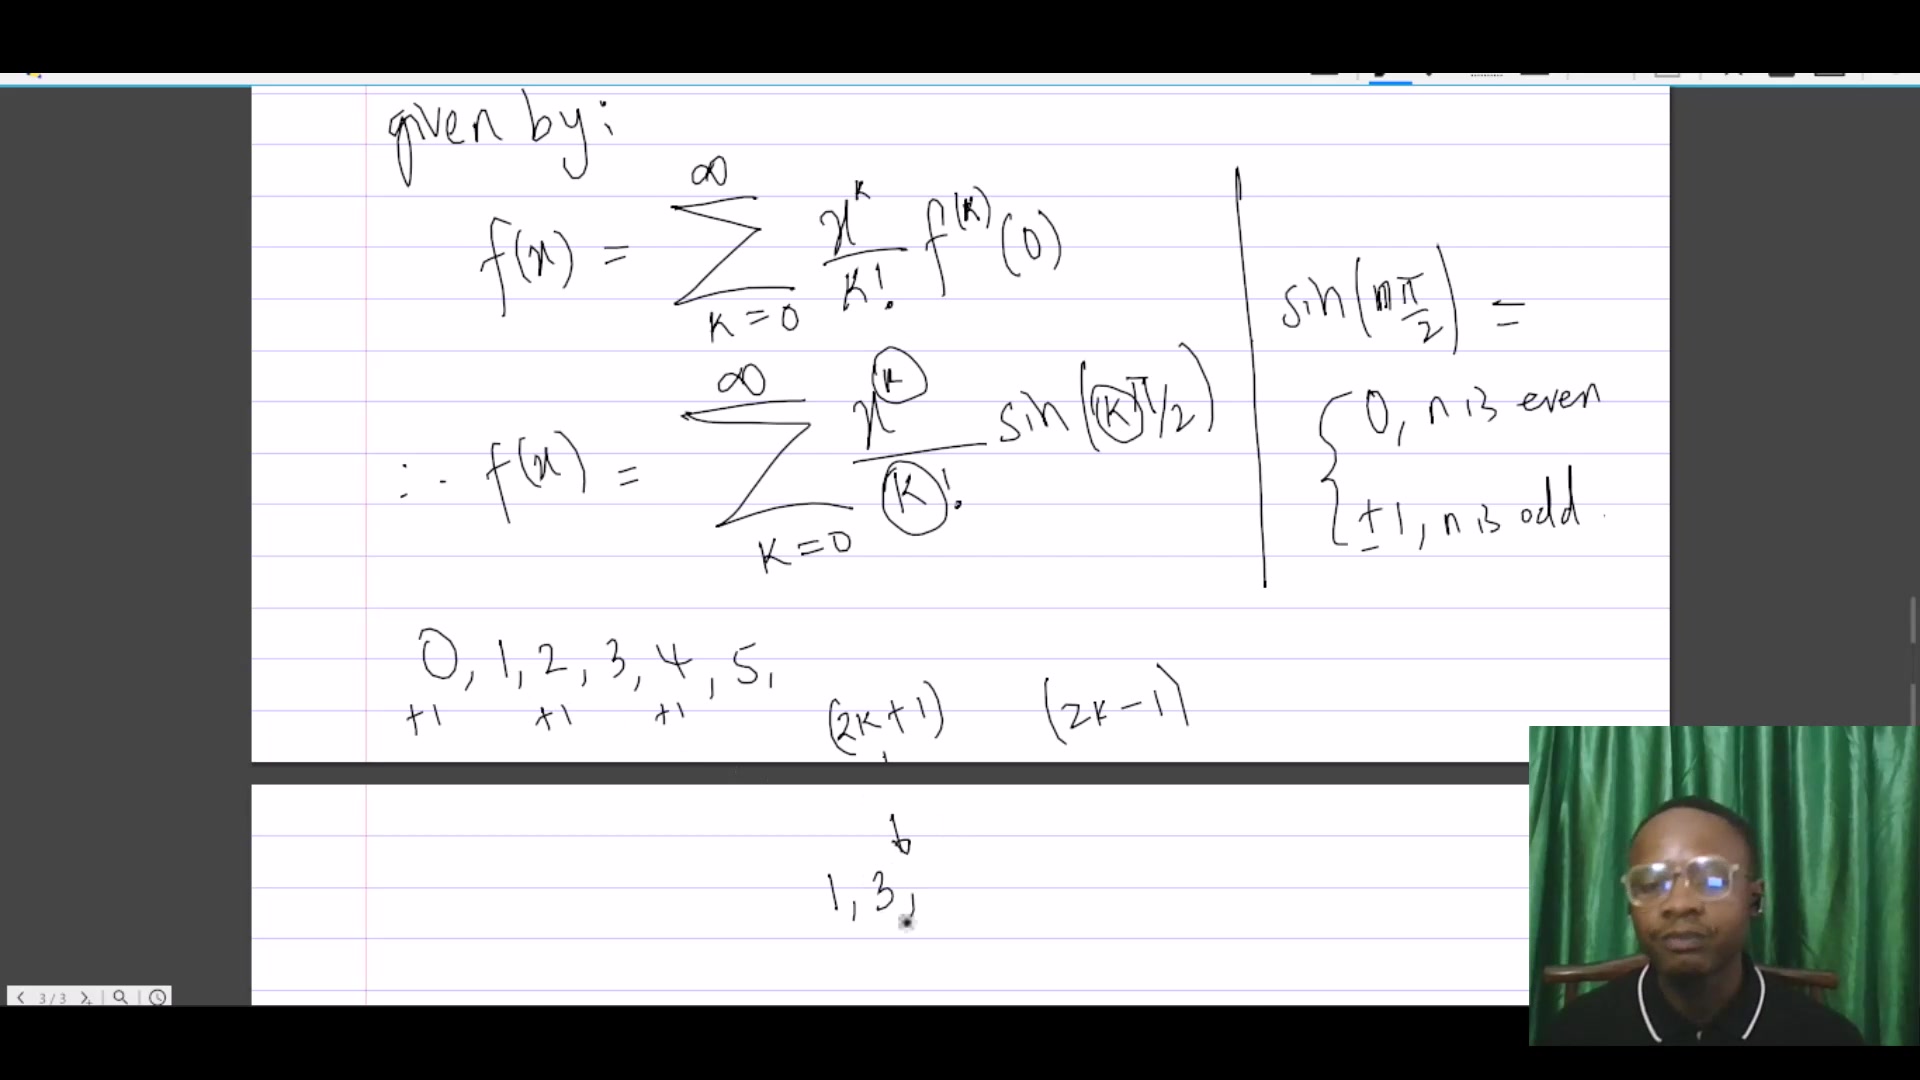 given by:
f(x) = ∞ Σ k=0 x^k/k! f^(k)(0)
∴ f(x) = ∞ Σ k=0 x^k/k! sin(kπ/2)
sin(nπ/2) =
{ 0, n is even
±1, n is odd.
0, 1, 2, 3, 4, 5,
+1 +1 +1 (2k+1) (2k-1)
1, 3,
3/3